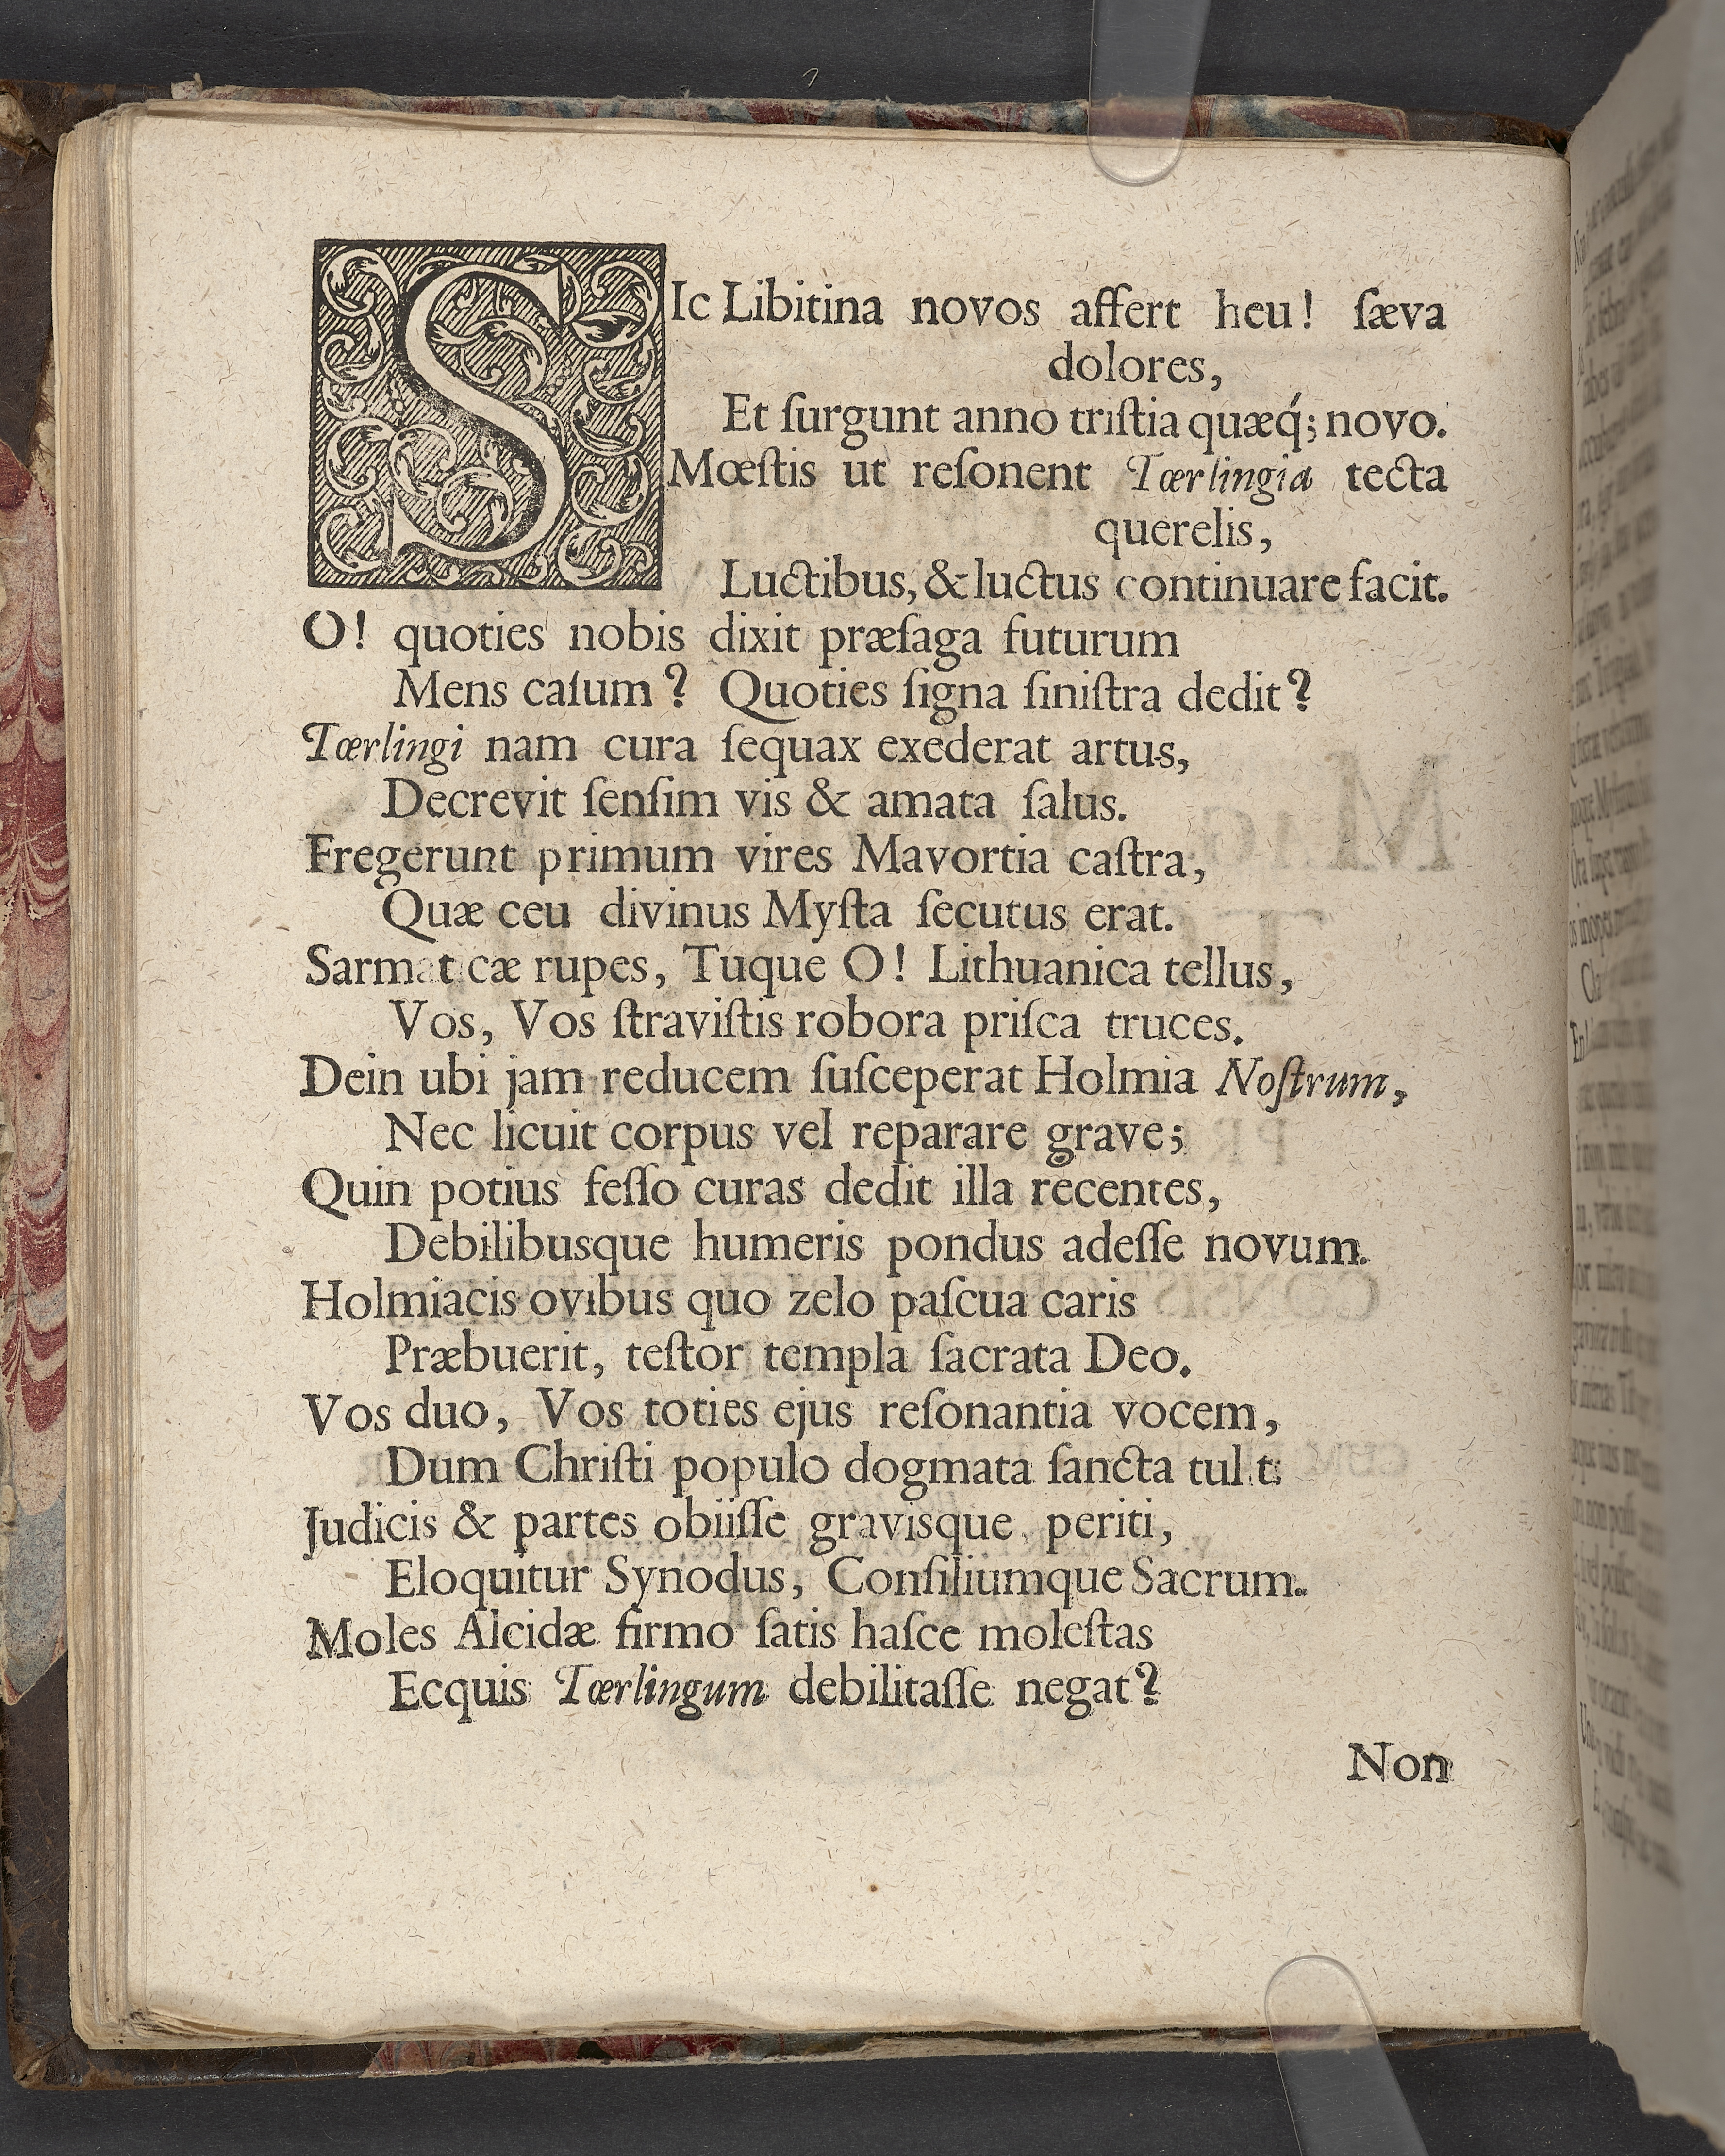 SIc Libitina novos affert heu! ſæva
dolores,
Et ſurgunt anno triſtia quæq́; novo.
Mœſtis ut reſonent Tœrlingia tecta
querelis,
Luctibus, & luctus continuare facit.
O! quoties nobis dixit præſaga futurum
Mens caſum? Quoties ſigna ſiniſtra dedit?
Tœrlingi nam cura ſequax exederat artus,
Decrevit ſenſim vis & amata ſalus.
Fregerunt primum vires Mavortia caſtra,
Quæ ceu divinus Myſta ſecutus erat.
Sarmaticæ rupes, Tuque O! Lithuanica tellus,
Vos, Vos ſtraviſtis robora priſca truces.
Dein ubi jam reducem ſuſceperat Holmia Noſtrum,
Nec licuit corpus vel reparare grave;
Quin potius feſſo curas dedit illa recentes,
Debilibusque humeris pondus adeſſe novum.
Holmiacis ovibus quo zelo paſcua caris
Præbuerit, teſtor templa ſacrata Deo.
Vos duo, Vos toties ejus reſonantia vocem,
Dum Chriſti populo dogmata ſancta tulit.
Judicis & partes obiiſſe gravisque periti,
Eloquitur Synodus, Conſiliumque Sacrum.
Moles Alcidæ firmo ſatis haſce moleſtas
Ecquis Tœrlingum debilitaſſe negat?
Non